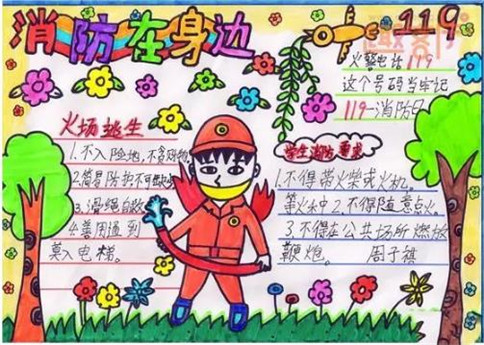 消防在身边
119
火警电话119
这个号码当牢记
119-消防日
火场逃生
1.不入险地,不贪财物
2.简易防护不可缺少
3.滑绳自救
4.善用通到
莫入电梯.
学生消防要求
1.不得带火柴或火机.
等火和中2.不得随意点火.
3不得在公共场所燃放
鞭炮. 周子祺